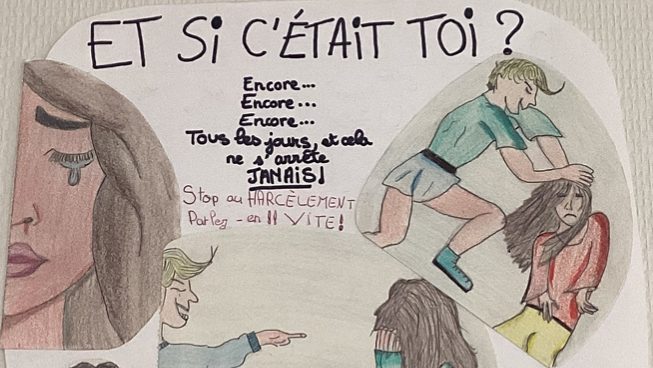 ET Si C'ÉTAiT TOi ?
Encore...
Encore...
Encore...
Tous les jours, et cela
ne s'arrête
JANAiS!
Stop au HARCÈLEMENT
Parlez-en !! VITE!